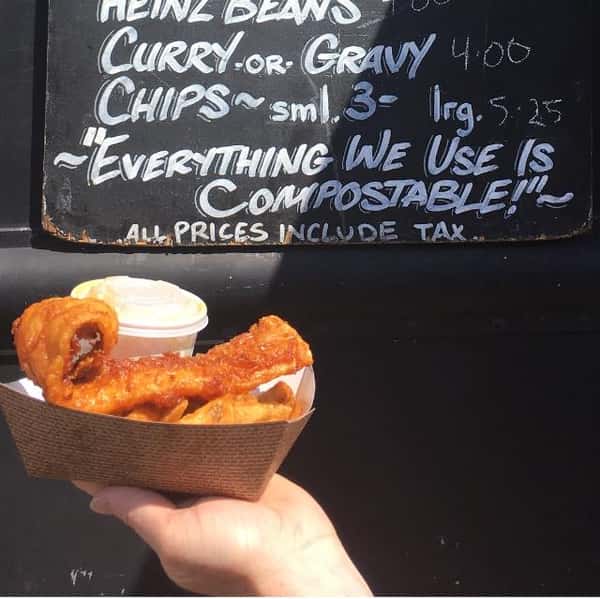 HEINZ BEANS
CURRY-OR-GRAVY 4.00
CHIPS~ sml. 3- lrg. 5.25
~"EVERYTHING WE USE IS
COMPOSTABLE!"~
ALL PRICES INCLUDE TAX.